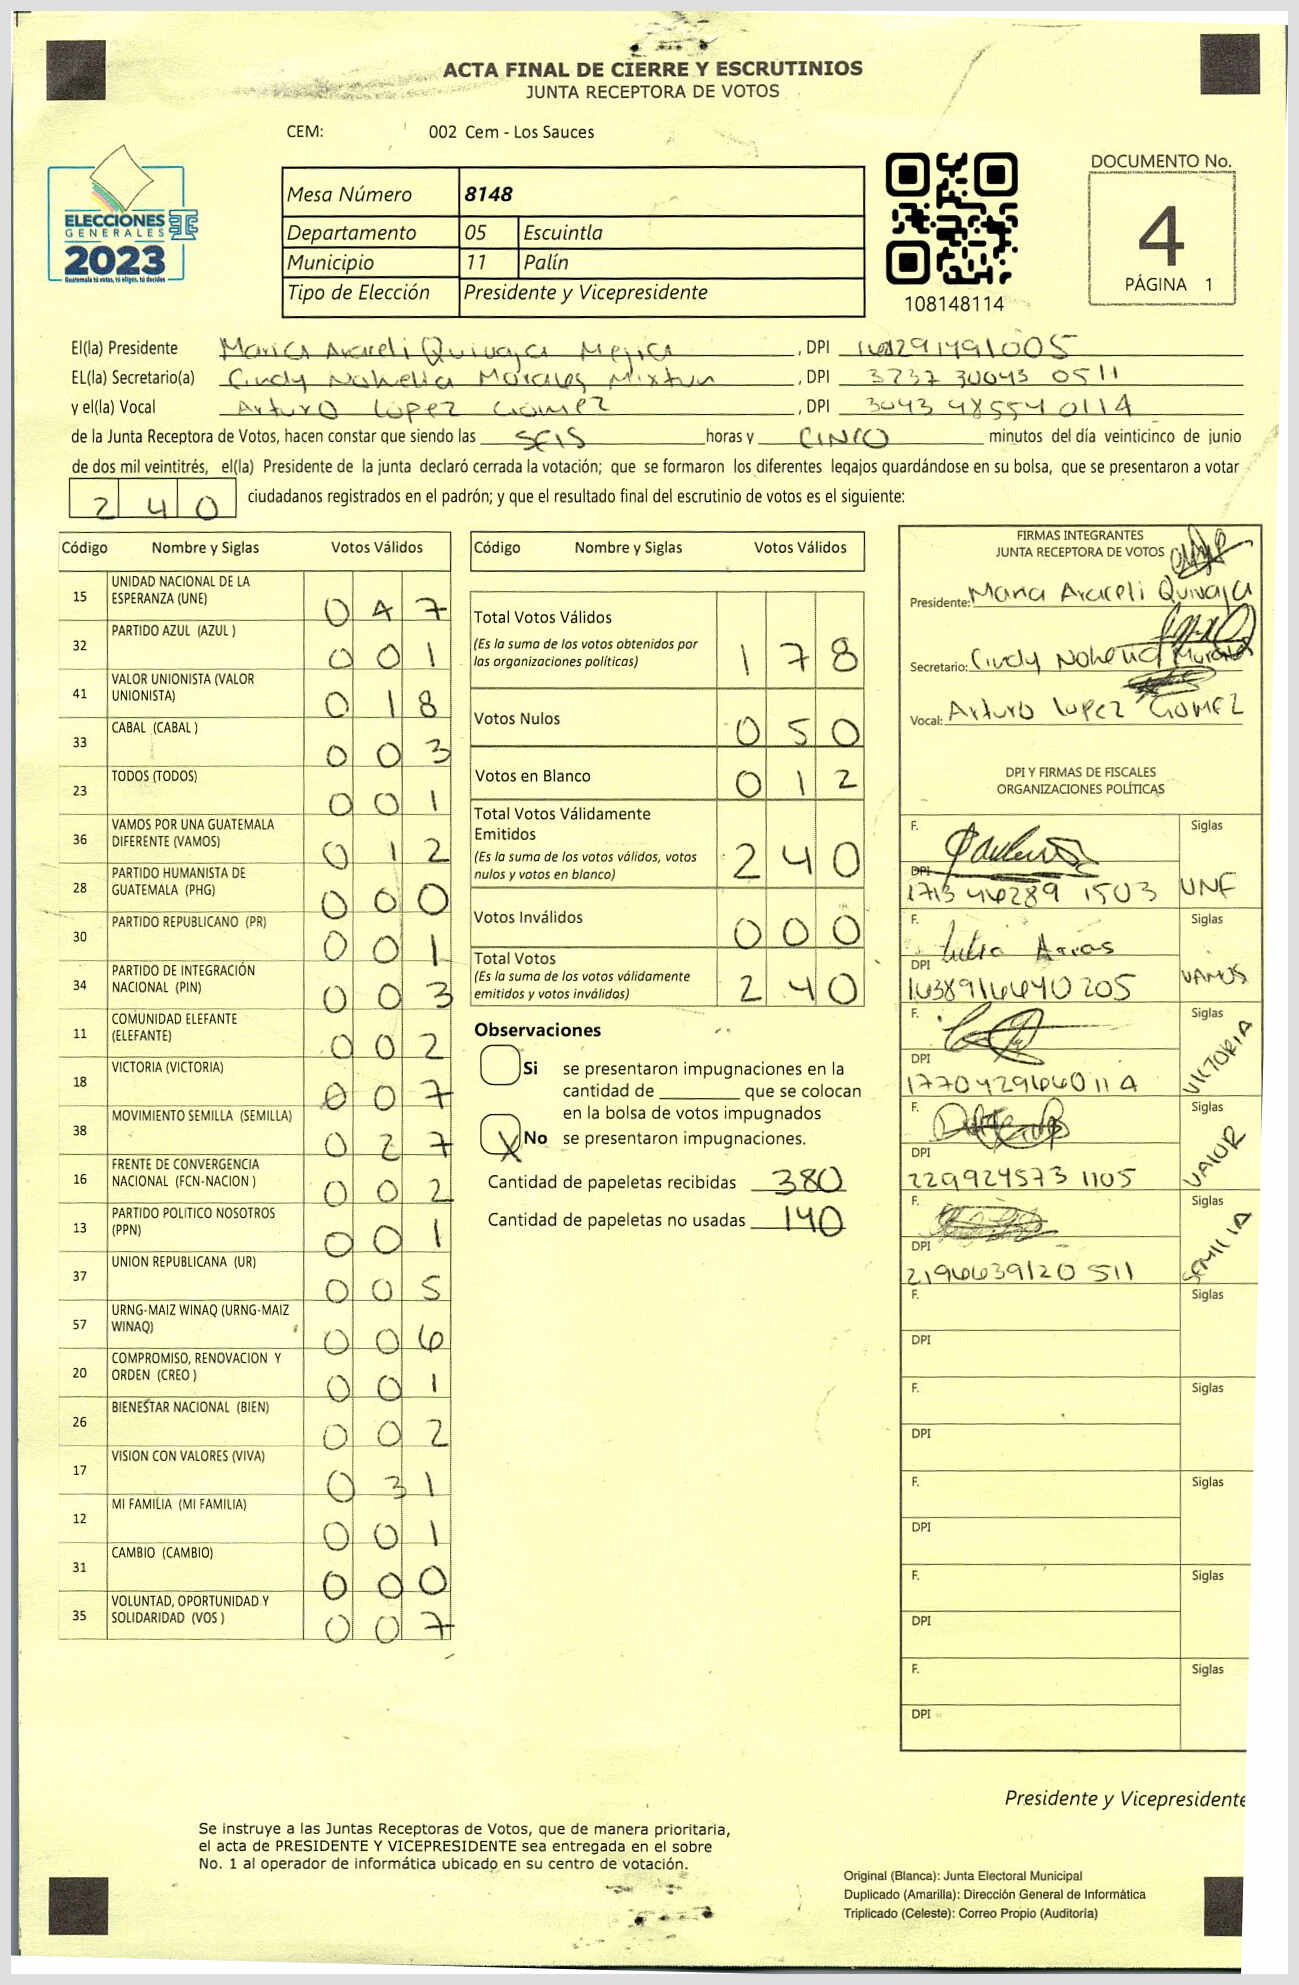 ACTA FINAL DE CIERRE Y ESCRUTINIOS
JUNTA RECEPTORA DE VOTOS
CEM: 002 Cem - Los Sauces
ELECCIONES
GENERALES
2023
Guatemala tú votas, tú eliges, tú decides
Mesa Número 8148
Departamento 05 Escuintla
Municipio 11 Palín
Tipo de Elección Presidente y Vicepresidente
108148114
DOCUMENTO No.
4
PÁGINA 1
El(la) Presidente Maria Araceli Quivaja Mejica , DPI
EL(la) Secretario(a) Cindy Nohelia Morales Mixtun , DPI 3737 30043 0511
y el(la) Vocal Arturo Lopez Gomez , DPI 3043 48554 0114
de la Junta Receptora de Votos, hacen constar que siendo las SEIS horas y CINCO minutos del día veinticinco de junio
de dos mil veintitrés, el(la) Presidente de la junta declaró cerrada la votación; que se formaron los diferentes legajos guardándose en su bolsa, que se presentaron a votar
240 ciudadanos registrados en el padrón; y que el resultado final del escrutinio de votos es el siguiente:
Código Nombre y Siglas Votos Válidos
15 UNIDAD NACIONAL DE LA ESPERANZA (UNE) 047
32 PARTIDO AZUL (AZUL ) 001
41 VALOR UNIONISTA (VALOR UNIONISTA) 018
33 CABAL (CABAL ) 003
23 TODOS (TODOS) 001
36 VAMOS POR UNA GUATEMALA DIFERENTE (VAMOS) 012
28 PARTIDO HUMANISTA DE GUATEMALA (PHG) 000
30 PARTIDO REPUBLICANO (PR) 001
34 PARTIDO DE INTEGRACIÓN NACIONAL (PIN) 003
11 COMUNIDAD ELEFANTE (ELEFANTE) 002
18 VICTORIA (VICTORIA) 007
38 MOVIMIENTO SEMILLA (SEMILLA) 027
16 FRENTE DE CONVERGENCIA NACIONAL (FCN-NACION ) 002
13 PARTIDO POLITICO NOSOTROS (PPN) 001
37 UNION REPUBLICANA (UR) 005
57 URNG-MAIZ WINAQ (URNG-MAIZ WINAQ) 006
20 COMPROMISO, RENOVACION Y ORDEN (CREO ) 001
26 BIENESTAR NACIONAL (BIEN) 002
17 VISION CON VALORES (VIVA) 031
12 MI FAMILIA (MI FAMILIA) 001
31 CAMBIO (CAMBIO) 000
35 VOLUNTAD, OPORTUNIDAD Y SOLIDARIDAD (VOS ) 007
Código Nombre y Siglas Votos Válidos
Total Votos Válidos 178
(Es la suma de los votos obtenidos por
las organizaciones políticas)
Votos Nulos 050
Votos en Blanco 012
Total Votos Válidamente
Emitidos 240
(Es la suma de los votos válidos, votos
nulos y votos en blanco)
Votos Inválidos 000
Total Votos 240
(Es la suma de los votos válidamente
emitidos y votos inválidos)
Observaciones
Si se presentaron impugnaciones en la
cantidad de ________ que se colocan
en la bolsa de votos impugnados
X No se presentaron impugnaciones.
Cantidad de papeletas recibidas 380
Cantidad de papeletas no usadas 140
FIRMAS INTEGRANTES
JUNTA RECEPTORA DE VOTOS
Presidente: Maria Araceli Quivaja
Secretario: Cindy Nohelia Morales
Vocal: Arturo Lopez Gomez
DPI Y FIRMAS DE FISCALES
ORGANIZACIONES POLÍTICAS
F. Siglas
DPI 1713 46289 1503 UNE
F. Arias Siglas
DPI 1638916640205 VAMOS
F. Siglas
DPI 1770429660114 VICTORIA
F. Siglas
DPI 229924573 1105 VALOR
F. Siglas
DPI 2196639120511 SEMILLA
F. Siglas
DPI
F. Siglas
DPI
F. Siglas
DPI
F. Siglas
DPI
F. Siglas
DPI
Presidente y Vicepresidente
Se instruye a las Juntas Receptoras de Votos, que de manera prioritaria,
el acta de PRESIDENTE Y VICEPRESIDENTE sea entregada en el sobre
No. 1 al operador de informática ubicado en su centro de votación.
Original (Blanca): Junta Electoral Municipal
Duplicado (Amarilla): Dirección General de Informática
Triplicado (Celeste): Correo Propio (Auditoría)